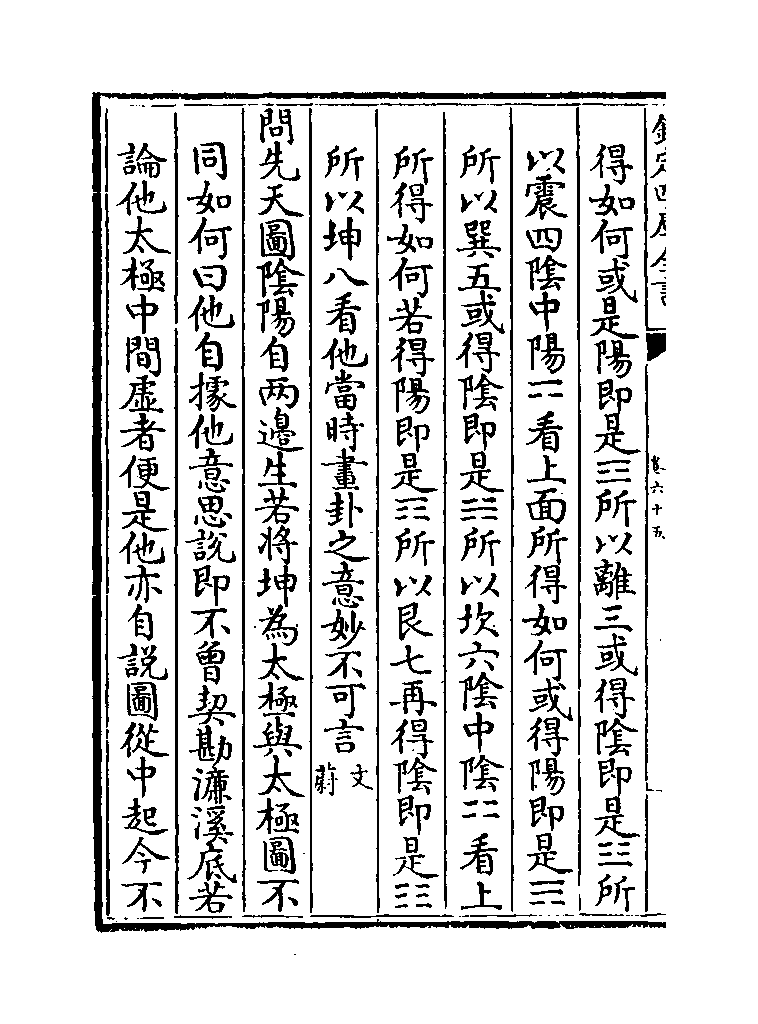 欽定四庫全書 卷六十五
得如何或是陽即是☲所以離三或得陰即是☳所
以震四陰中陽⚎看上面所得如何或得陽即是☴
所以巽五或得陰即是☵所以坎六陰中陰⚏看上
所得如何若得陽即是☶所以艮七再得陰即是☷
所以坤八看他當時畫卦之意妙不可言文蔚
問先天圖陰陽自两邉生若将坤為太極與太極圖不
同如何曰他自據他意思説即不曾契勘濂溪底若
論他太極中間虚者便是他亦自説圖從中起今不